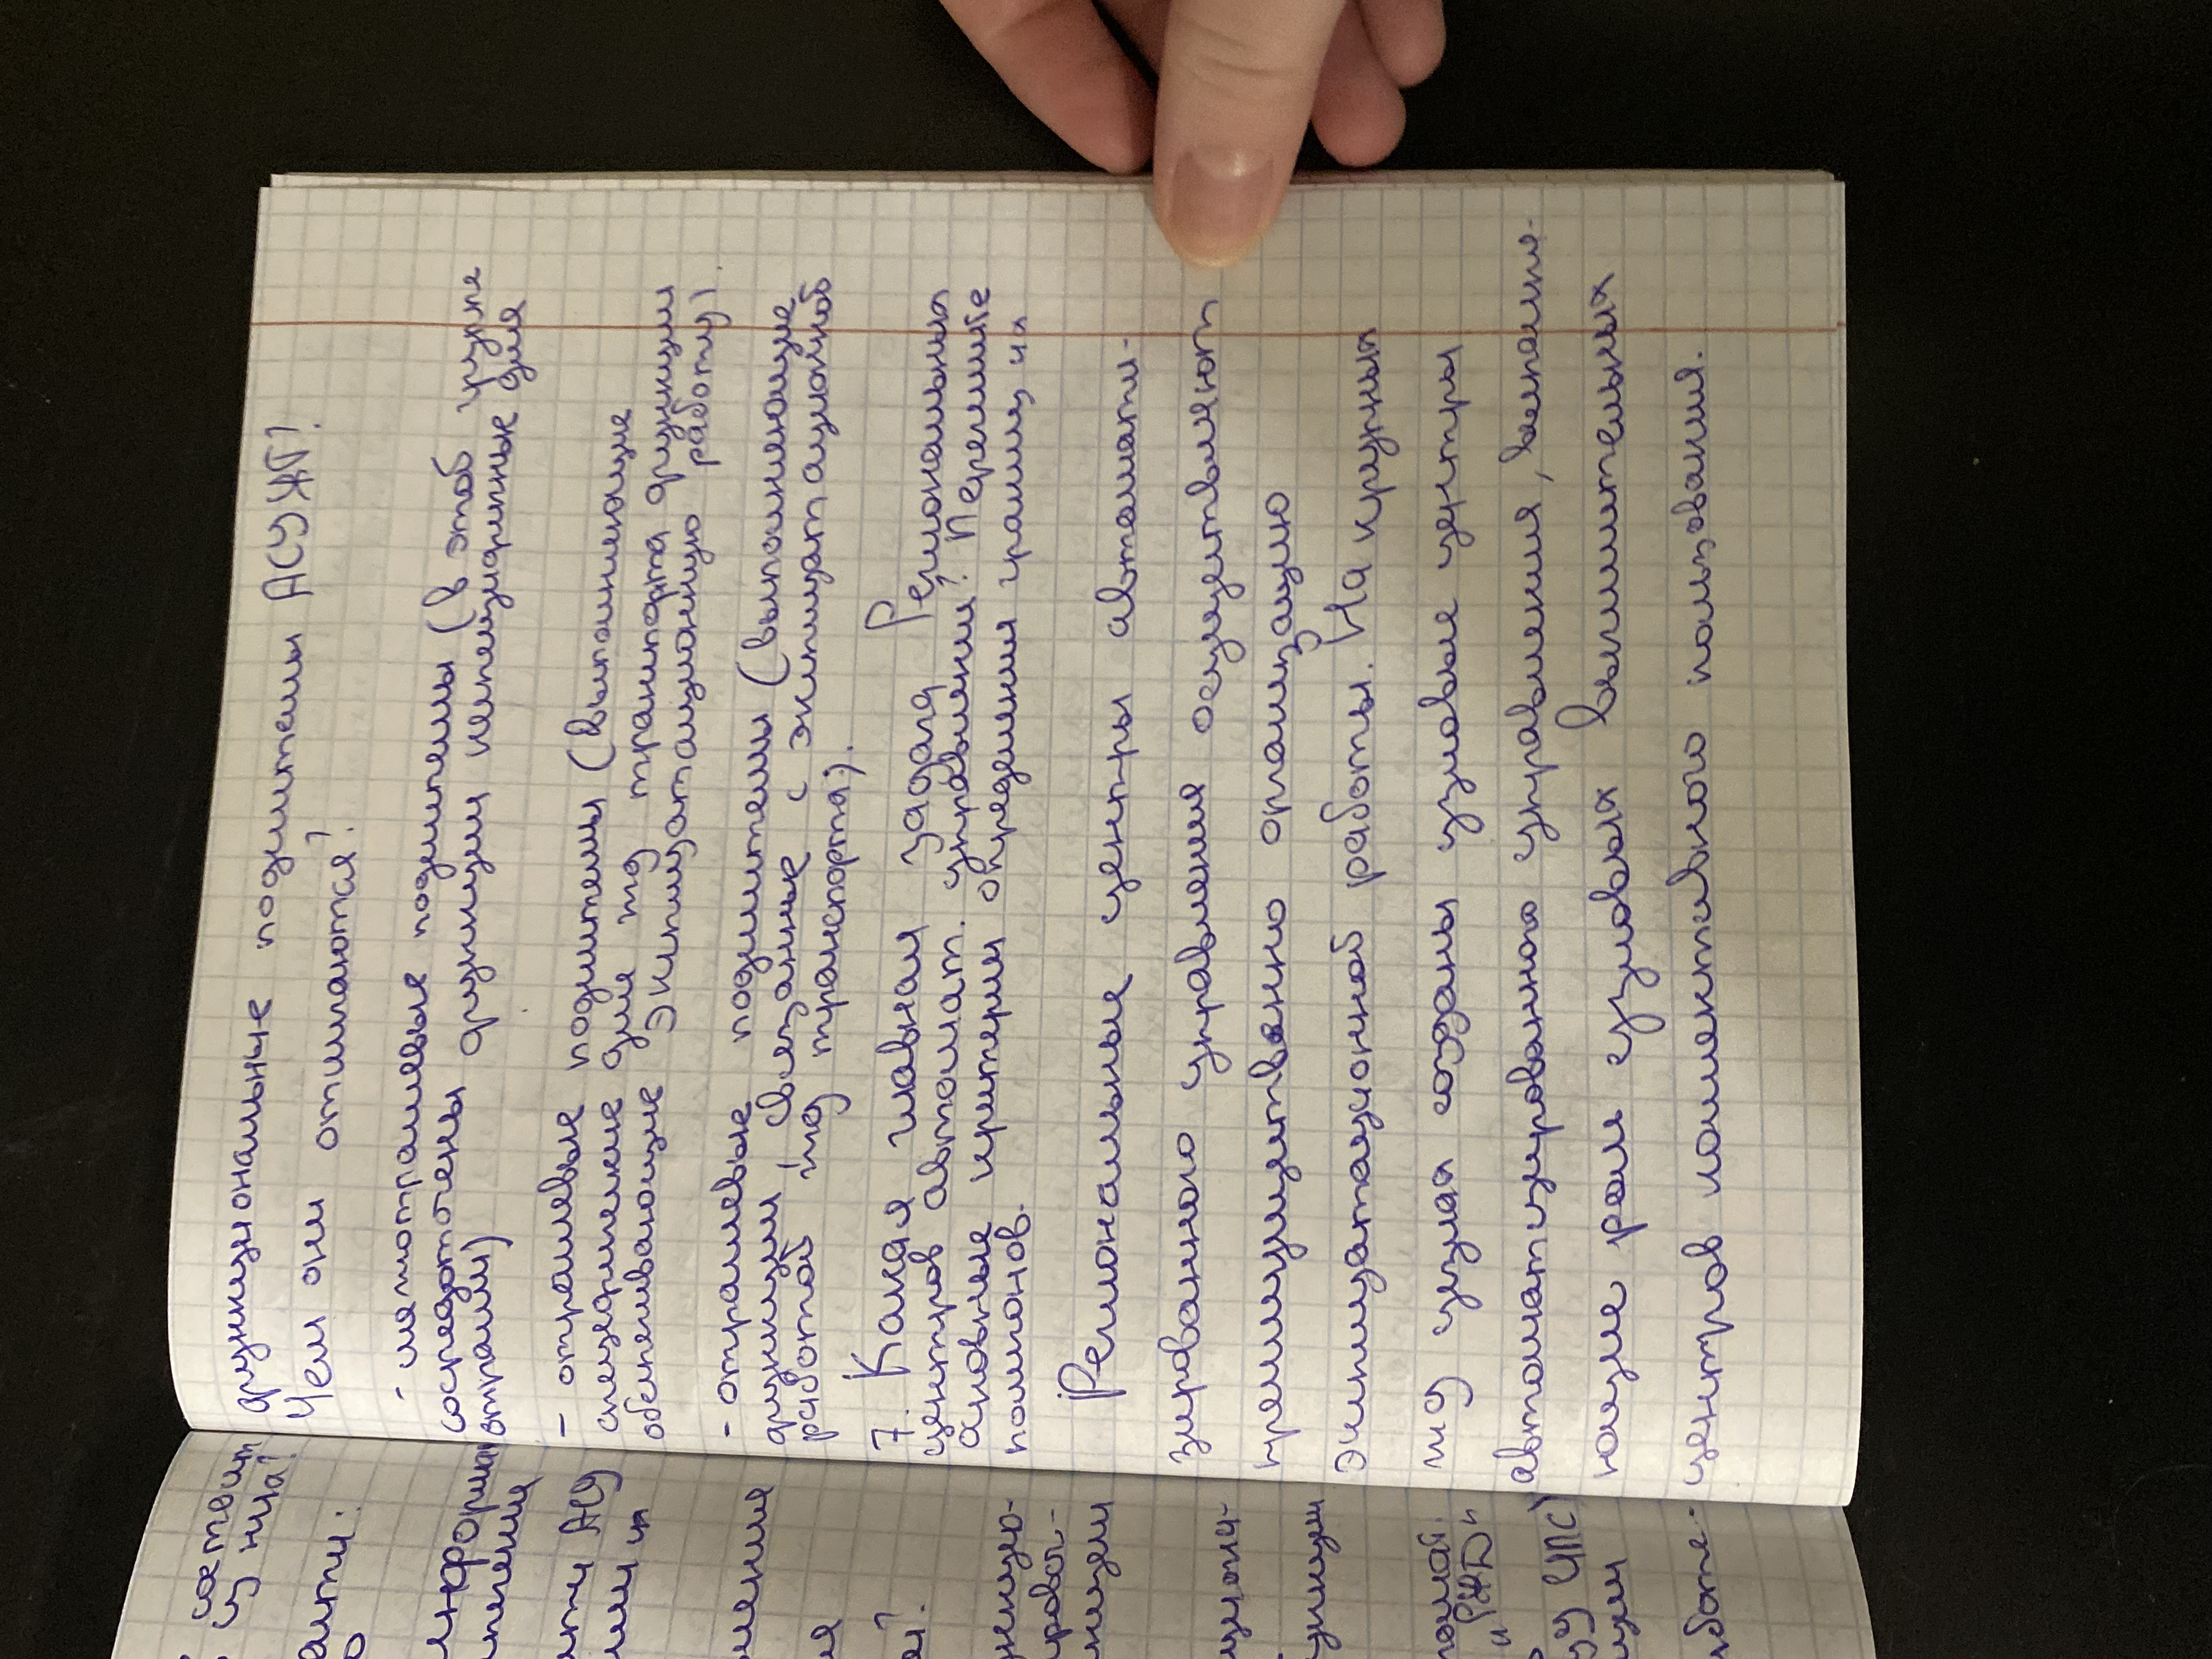 функциональные подсистемы АСУЖТ?
Чем они отличаются?
- межотраслевые подсистемы (в этой группе
сосредоточены функции неспецифичные для
отрасли)
- отраслевые подсистемы (выполняющие
специфические для ж/д транспорта функции
обеспечивающие эксплуатационную работу).
- отраслевые подсистемы (выполняющие
функции связанные с эксплуатационной
работой ж/д транспорта).
7. Какая главная задача Региональных
центров автомат. управления? Перечислите
основные критерии определения границ их
полигонов.
Региональные центры автомати-
зированного управления осуществляют
преимущественно организацию
эксплуатационной работы. На крупных
ж/д узлах созданы узловые центры
автоматизированного управления, выполня-
ющие роль узловых вычислительных
центров коллективного пользования.
АСУ
"РЖД"